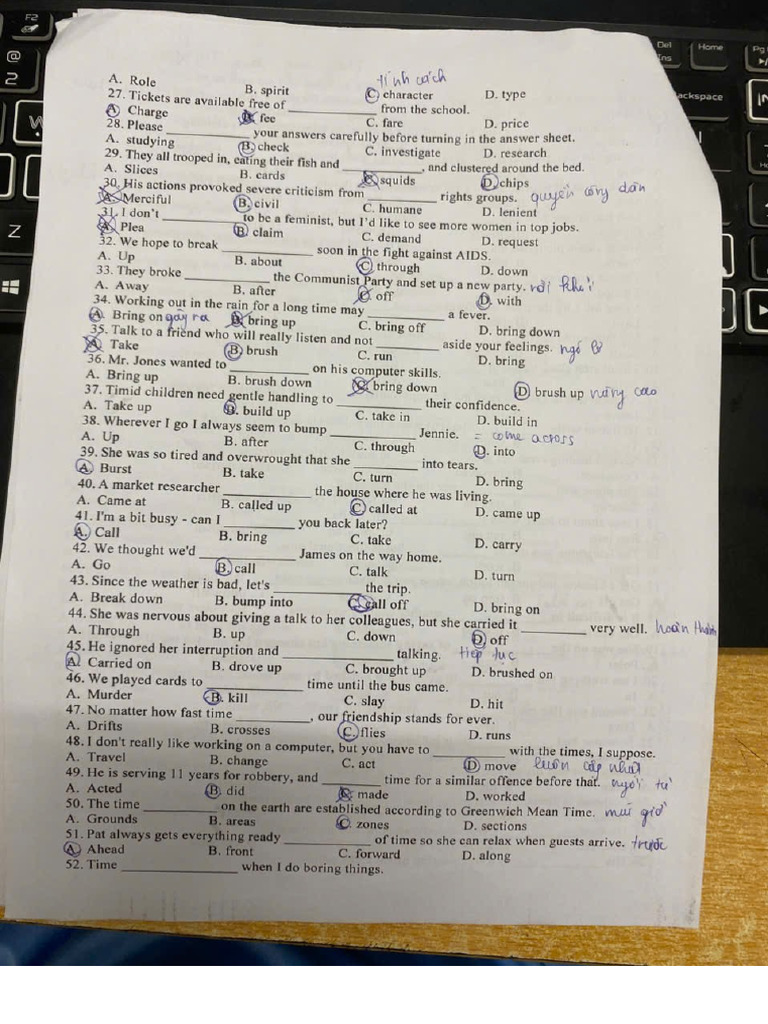 F2
@
2
Del
Ins
Home
Pg
ackspace
W
Z
A. Role B. spirit C. character D. type tính cách
27. Tickets are available free of ____________ from the school.
A. Charge B. fee C. fare D. price
28. Please ____________ your answers carefully before turning in the answer sheet.
A. studying B. check C. investigate D. research
29. They all trooped in, eating their fish and ____________, and clustered around the bed.
A. Slices B. cards C. squids D. chips
30. His actions provoked severe criticism from __________ rights groups. quyền công dân
A. Merciful B. civil C. humane D. lenient
31. I don't ____________ to be a feminist, but I'd like to see more women in top jobs.
A. Plea B. claim C. demand D. request
32. We hope to break ____________ soon in the fight against AIDS.
A. Up B. about C. through D. down
33. They broke ____________ the Communist Party and set up a new party. rời khỏi
A. Away B. after C. off D. with
34. Working out in the rain for a long time may ____________ a fever.
A. Bring on gây ra B. bring up C. bring off D. bring down
35. Talk to a friend who will really listen and not __________ aside your feelings. ngó lơ
A. Take B. brush C. run D. bring
36. Mr. Jones wanted to ____________ on his computer skills.
A. Bring up B. brush down C. bring down D. brush up nâng cao
37. Timid children need gentle handling to ____________ their confidence.
A. Take up B. build up C. take in D. build in
38. Wherever I go I always seem to bump ____________ Jennie. = come across
A. Up B. after C. through D. into
39. She was so tired and overwrought that she __________ into tears.
A. Burst B. take C. turn D. bring
40. A market researcher ____________ the house where he was living.
A. Came at B. called up C. called at D. came up
41. I'm a bit busy - can I __________ you back later?
A. Call B. bring C. take D. carry
42. We thought we'd ____________ James on the way home.
A. Go B. call C. talk D. turn
43. Since the weather is bad, let's ____________ the trip.
A. Break down B. bump into C. call off D. bring on
44. She was nervous about giving a talk to her colleagues, but she carried it __________ very well. hoàn thành
A. Through B. up C. down D. off
45. He ignored her interruption and ____________ talking. tiếp tục
A. Carried on B. drove up C. brought up D. brushed on
46. We played cards to ____________ time until the bus came.
A. Murder B. kill C. slay D. hit
47. No matter how fast time ____________, our friendship stands for ever.
A. Drifts B. crosses C. flies D. runs
48. I don't really like working on a computer, but you have to __________ with the times, I suppose.
A. Travel B. change C. act D. move luôn cập nhật
49. He is serving 11 years for robbery, and __________ time for a similar offence before that. ngồi tù
A. Acted B. did C. made D. worked
50. The time ____________ on the earth are established according to Greenwich Mean Time. múi giờ
A. Grounds B. areas C. zones D. sections
51. Pat always gets everything ready ____________ of time so she can relax when guests arrive. trước
A. Ahead B. front C. forward D. along
52. Time __________________ when I do boring things.